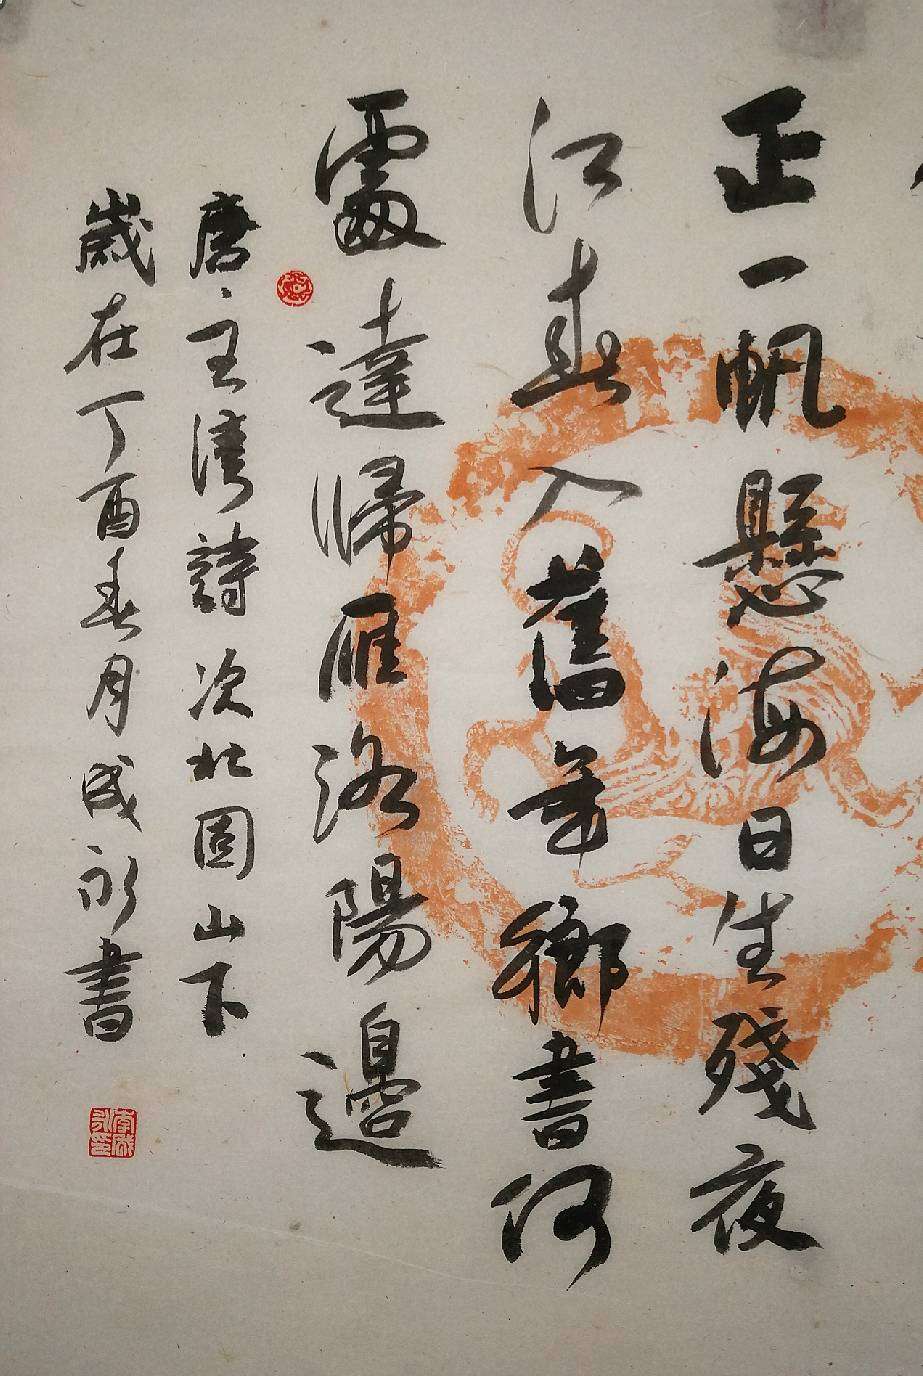 正一帆懸海日生殘夜
江春入舊年鄉書何
處達歸雁洛陽邊
唐、王灣詩次北固山下
歲在丁酉春月成永書